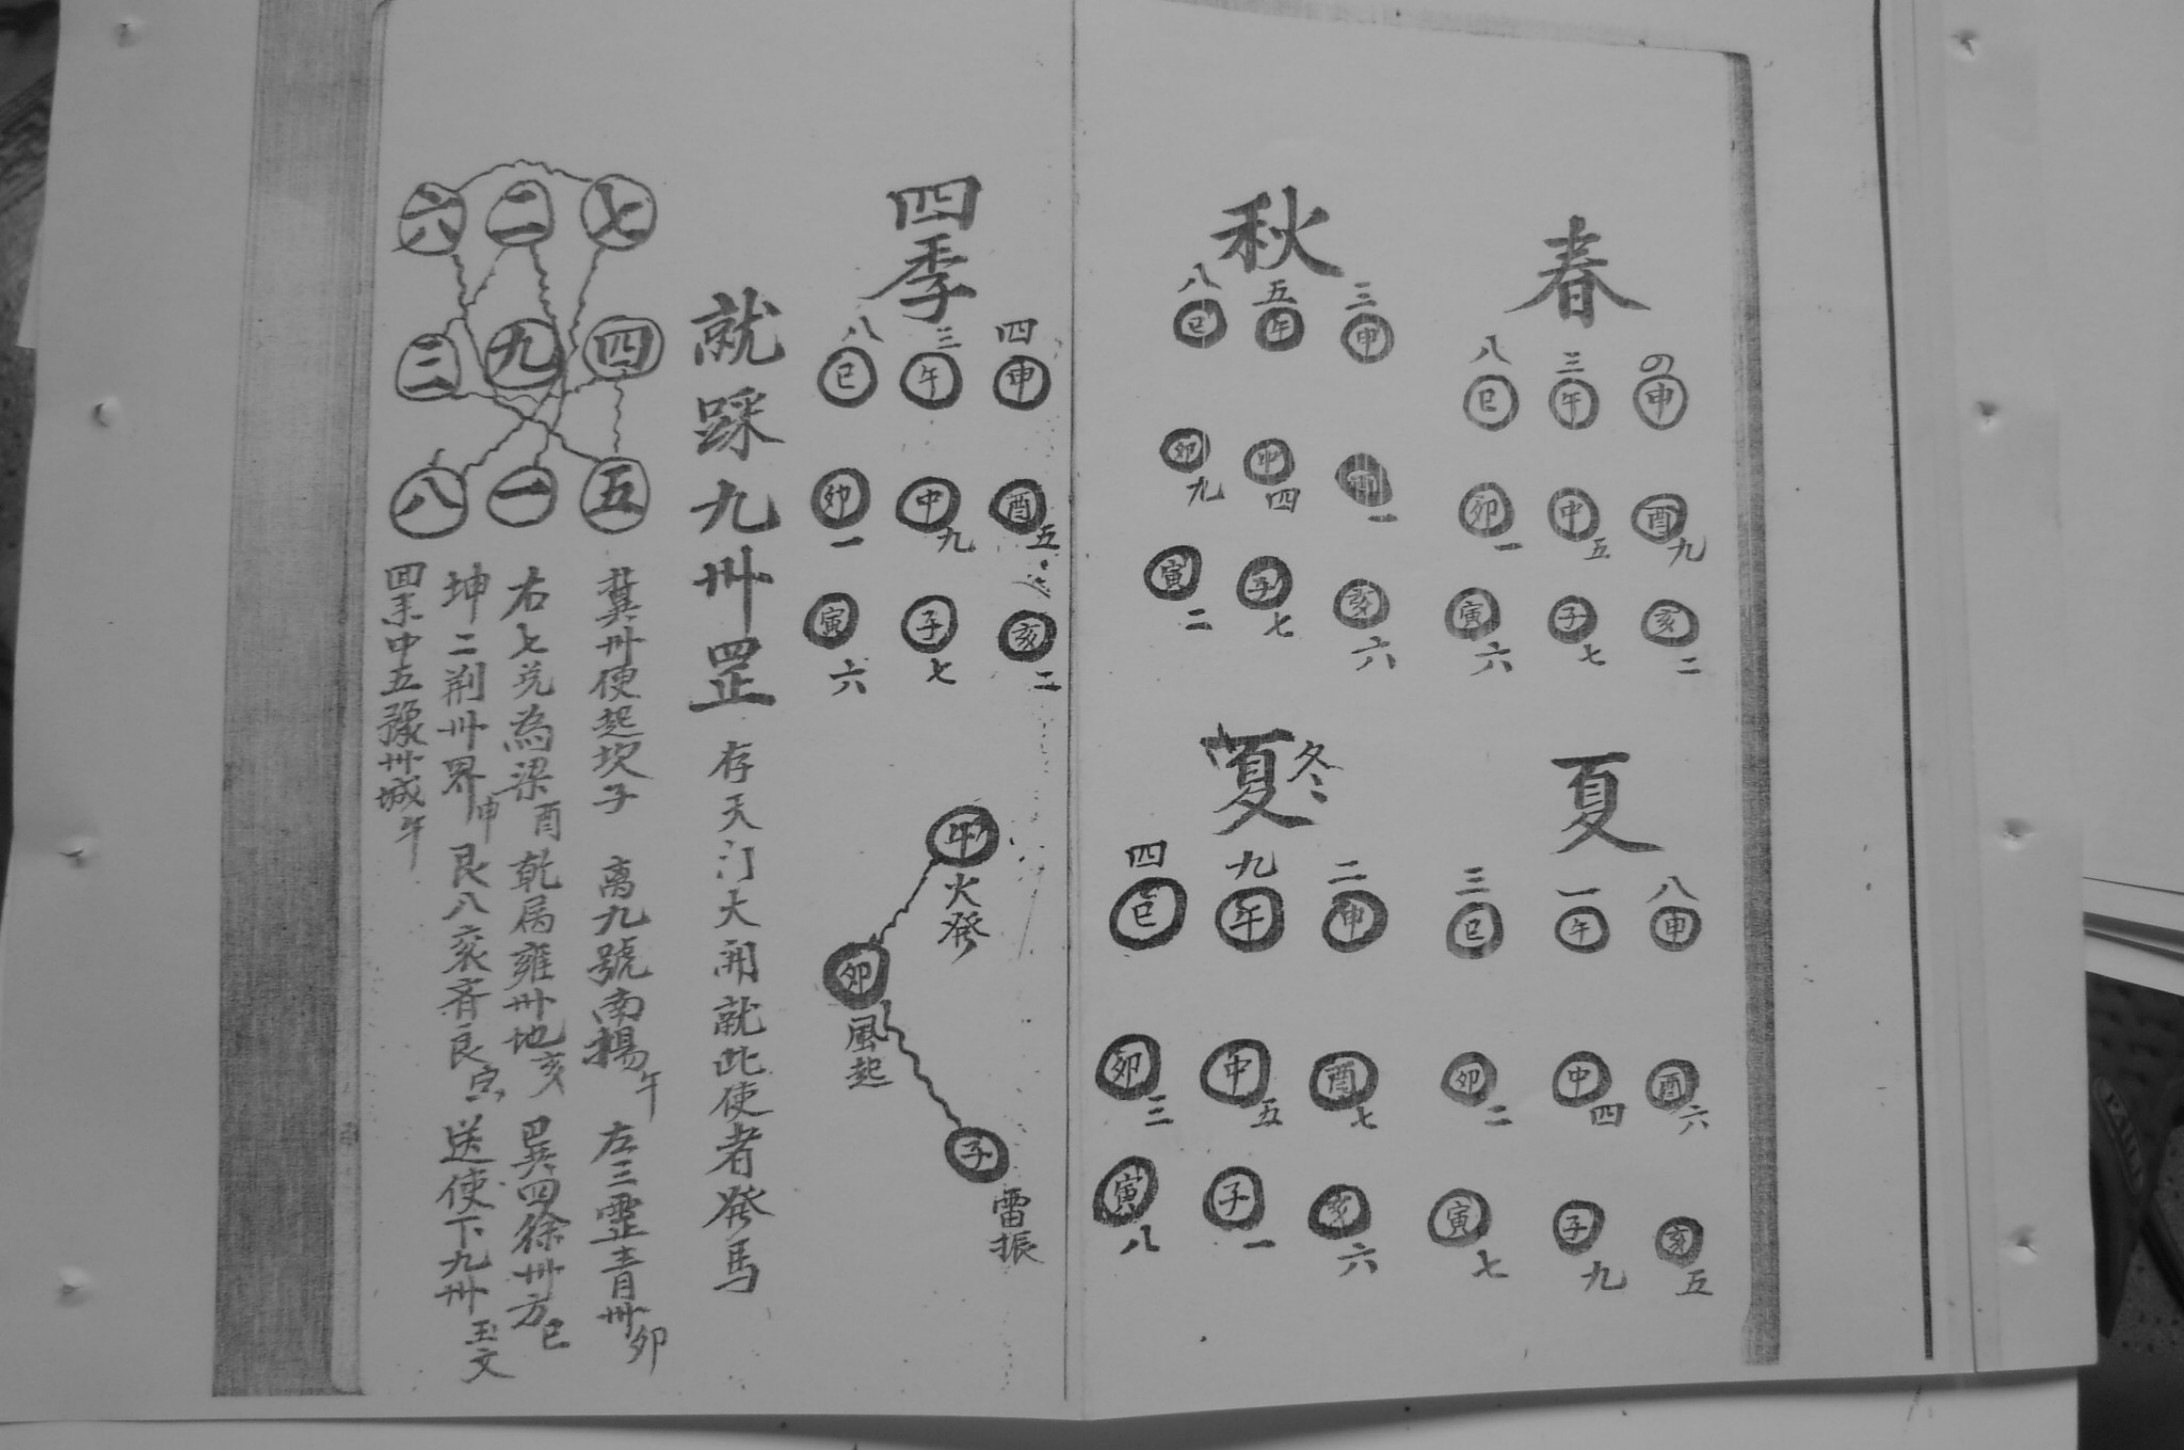 春
八 三 の
巳 午 申
卯 中 酉
一 五 九
寅 子 亥
六 七 二
夏
三 一 八
巳 午 申
卯 中 酉
二 四 六
寅 子 亥
七 九 五
秋
八 五 三
巳 午 申
卯 中
九 四 一
寅 子 亥
二 七 六
冬
夏
四 九 二
巳 午 申
卯 中 酉
三 五 七
寅 子 亥
八 一 六
四季
八 三 四
巳 午 申
卯 中 酉
一 九 五
寅 子 亥
六 七 二
午 火發
卯 風起
子 雷振
就踩九州罡 存天门大開就此使者發馬
六 二 七
三 九 四
八 一 五
冀州使起坎子 离九號南楊午 左三靈青州卯
右七兑為梁酉 乾属雍州地亥 巽四徐州方巳
坤二荆州界申 艮八兖 送使下九州玉文
回 中五豫州城午